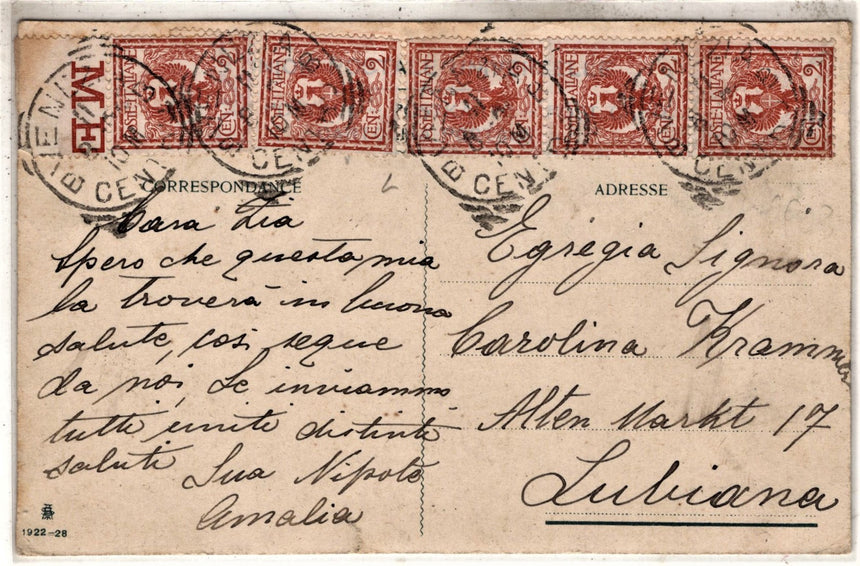 ME
POSTE ITALIANE CENT 2
POSTE ITALIANE CENT 2
POSTE ITALIANE CENT 2
POSTE ITALIANE CENT 2
POSTE ITALIANE CENT 2
CORRESPONDANCE
Cara Zia
Spero che questa mia
la troverà in buona
salute, così segue
da noi, Le inviammo
tutti uniti distinti
saluti Sua Nipote
Amalia
1922-28
ADRESSE
Egregia Signora
Carolina Krammer
Alten Markt 17
Lubiana